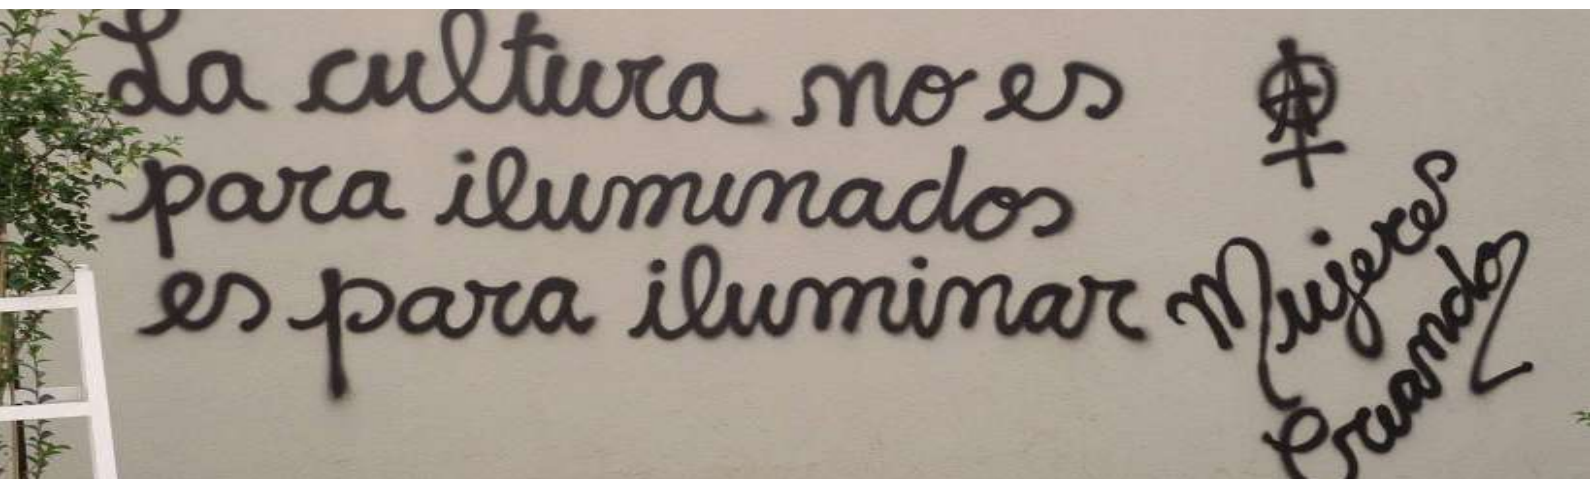 La cultura no es
para iluminados
es para iluminar
Mujeres
Creando